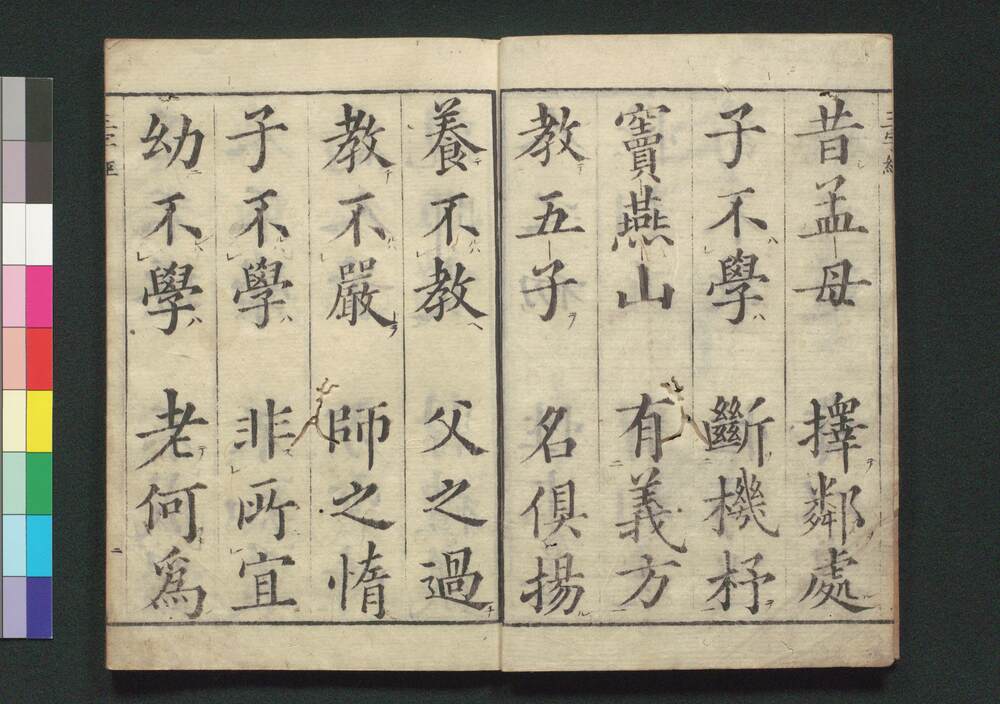 昔孟母 擇鄰處
子不學 斷機杼
竇燕山 有義方
教五子 名俱揚
養不教 父之過
教不嚴 師之惰
子不學 非所宜
幼不學 老何爲